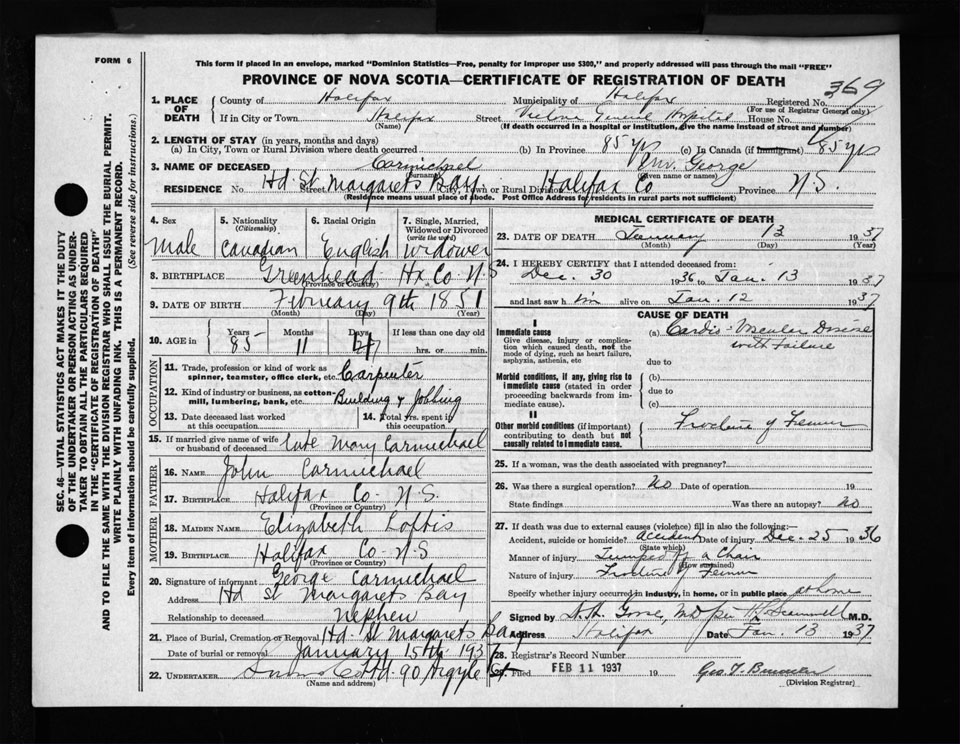 FORM 6
This form if placed in an envelope, marked "Dominion Statistics—Free, penalty for improper use $300," and properly addressed will pass through the mail "FREE"
PROVINCE OF NOVA SCOTIA—CERTIFICATE OF REGISTRATION OF DEATH
369
1. PLACE OF DEATH County of Halifax Municipality of Halifax Registered No. (For use of Registrar General only)
If in City or Town Halifax (Name) Street Victoria General Hospital House No.
(If death occurred in a hospital or institution, give the name instead of street and number)
2. LENGTH OF STAY (in years, months and days)
(a) In City, Town or Rural Division where death occurred (b) In Province 85 yrs (c) In Canada (if immigrant) 85 yrs
3. NAME OF DECEASED Carmichael (Surname) Wm. George (Given name or names)
RESIDENCE No. Hd St. Margarets Bay Street City, Town or Rural Division Halifax Co Province N.S.
(Residence means usual place of abode. Post Office Address for residents in rural parts not sufficient)
4. Sex Male
5. Nationality (Citizenship) Canadian
6. Racial Origin English
7. Single, Married, Widowed or Divorced (write the word) Widower
8. BIRTHPLACE Greenhead Hx Co N.S (Province or Country)
9. DATE OF BIRTH February 9th 1851
(Month) (Day) (Year)
10. AGE in Years 85 Months 11 Days 4 If less than one day old hrs. or min.
OCCUPATION
11. Trade, profession or kind of work as spinner, teamster, office clerk, etc. Carpenter
12. Kind of industry or business, as cotton-mill, lumbering, bank, etc. Building & Jobbing
13. Date deceased last worked at this occupation
14. Total yrs. spent in this occupation
15. If married give name of wife or husband of deceased late Mary Carmichael
FATHER
16. NAME John Carmichael
17. BIRTHPLACE Halifax Co. N.S. (Province or Country)
MOTHER
18. MAIDEN NAME Elizabeth Loftis
19. BIRTHPLACE Halifax Co N.S (Province or Country)
20. Signature of informant George Carmichael
Address Hd St Margarets Bay
Relationship to deceased nephew
21. Place of Burial, Cremation or Removal Hd. St Margarets Bay
Date of burial or removal January 15th 1937
22. UNDERTAKER Snow Co Ltd. 90 Argyle St
(Name and address)
MEDICAL CERTIFICATE OF DEATH
23. DATE OF DEATH January 13 1937
(Month) (Day)
24. I HEREBY CERTIFY that I attended deceased from:
Dec. 30 1936 to Jan. 13 1937
and last saw him alive on Jan. 12 1937
CAUSE OF DEATH
I
Immediate cause
Give disease, injury or complication which caused death, not the mode of dying, such as heart failure, asphyxia, asthenia, etc
(a) Cardio-Vascular Disease with Failure
due to
Morbid conditions, if any, giving rise to immediate cause (stated in order proceeding backwards from immediate cause).
(b)
due to
(c)
II
Other morbid conditions (if important) contributing to death but not causally related to immediate cause.
Fracture of Femur
25. If a woman, was the death associated with pregnancy?
26. Was there a surgical operation? No Date of operation 19
State findings Was there an autopsy? no
27. If death was due to external causes (violence) fill in also the following:—
Accident, suicide or homicide? accident (State which) Date of injury Dec. 25 1936
Manner of injury Jumped off a Chair (How sustained)
Nature of injury Fracture of Femur
Specify whether injury occurred in industry, in home, or in public place at home
Signed by M.D.
Address Halifax Date Jan. 13 1937
28. Registrar's Record Number
Filed FEB 11 1937 19
(Division Registrar)
SEC. 46—VITAL STATISTICS ACT MAKES IT THE DUTY OF THE UNDERTAKER OR PERSON ACTING AS UNDERTAKER TO OBTAIN ALL THE PARTICULARS REQUIRED IN THE "CERTIFICATE OF REGISTRATION OF DEATH"
AND TO FILE THE SAME WITH THE DIVISION REGISTRAR WHO SHALL ISSUE THE BURIAL PERMIT.
WRITE PLAINLY WITH UNFADING INK. THIS IS A PERMANENT RECORD.
Every item of information should be carefully supplied. (See reverse side for instructions.)